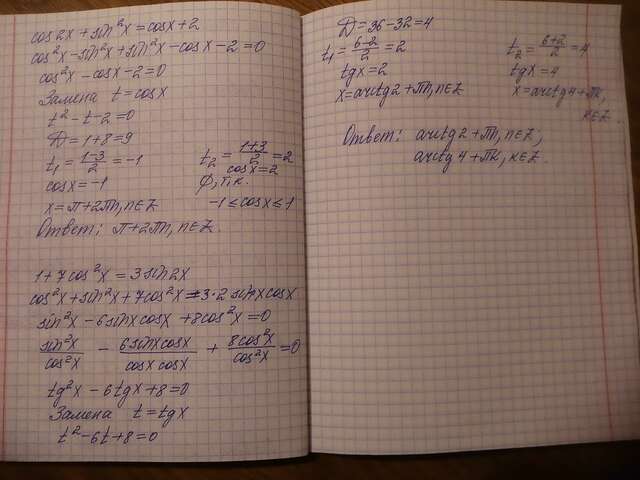 cos2x + sin²x = cosx + 2
cos²x - sin²x + sin²x - cosx - 2 = 0
cos²x - cosx - 2 = 0
Замена t = cosx
t² - t - 2 = 0
D = 1 + 8 = 9
t₁ = (1-3)/2 = -1    t₂ = (1+3)/2 = 2
cosx = 2
cosx = -1    ∅, т.к.
x = π + 2πn, n∈Z    -1 ≤ cosx ≤ 1
Ответ: π + 2πn, n∈Z.
1 + 7cos²x = 3sin2x
cos²x + sin²x + 7cos²x = 3·2 sinx cosx
sin²x - 6sinx cosx + 8cos²x = 0
sin²x/cos²x - 6sinx cosx/cosx cosx + 8cos²x/cos²x = 0
tg²x - 6tgx + 8 = 0
Замена t = tgx
t² - 6t + 8 = 0
D = 36 - 32 = 4
t₁ = (6-2)/2 = 2    t₂ = (6+2)/2 = 4
tgx = 2    tgx = 4
x = arctg2 + πn, n∈Z    x = arctg4 + πk,
k∈Z.
Ответ: arctg2 + πn, n∈Z;
arctg4 + πk, k∈Z.